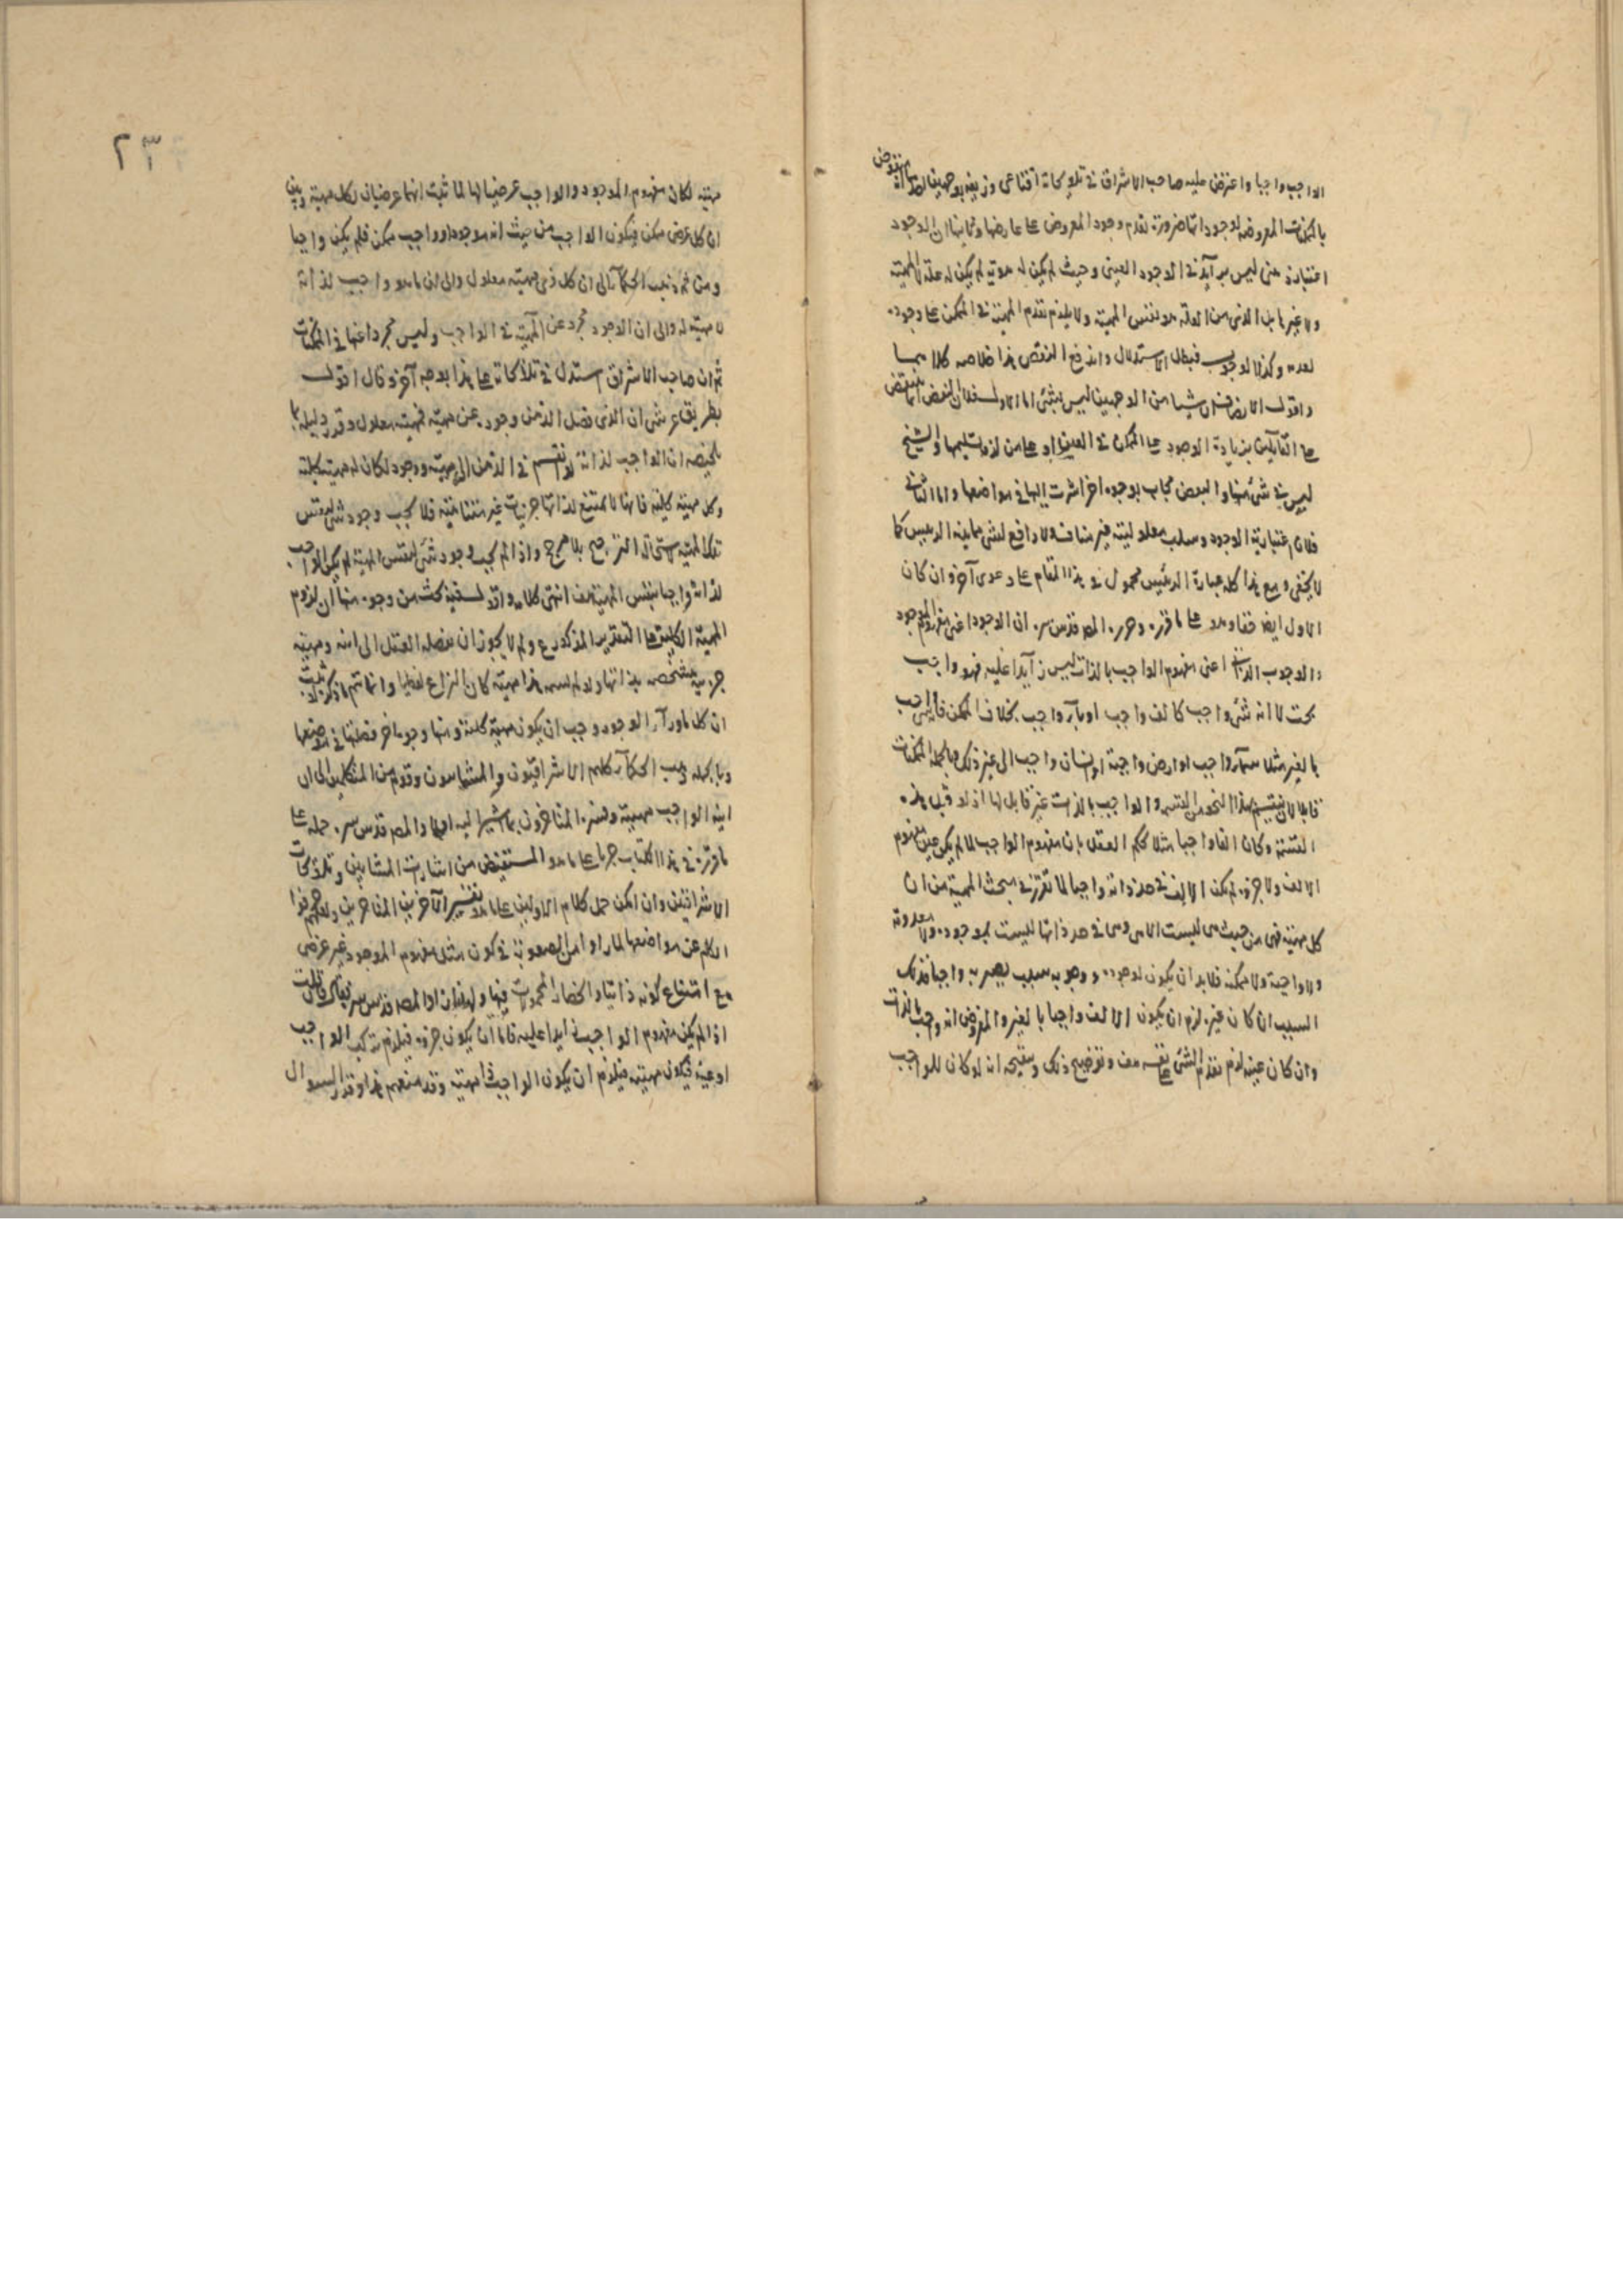 الواجب واجبا واعترض عليه صاحب الاشراق في تلويحاته اقناعي وزيفه بوجهين احدهما انه منقوض
بالممكنات المعروضة لوجوداتها ضرورة تقدم وجود المعروض على عارضها وثانيهما ان الوجود
اعتباري عنى ليس بزايد في الوجود العيني وحيث لم يكن له هوية لم يكن له علة لا المهية
ولا غيرها بل الذي من العلة هو نفس المهية ولا يلزم تقدم المهية في الممكن على وجوده
لعدمه وكذا الوجوب فبطل الاستدلال واندفع النقض هذا خلاصة كلامه
واقول الانصاف ان شيئا من الوجهين ليس بشئ اما الاول فلان النقض انما ينتقض
على القائلين بزيادة الوجود على الممكن في العين او على من لزمه تسليمها والشيخ
ليس في شئ منها والبعض يجاب بوجوه اخر اشرت اليها في مواضعها واما الثاني
فلان اعتبارية الوجود وسلب معلوليته غير مناف ولا دافع لشئ مما يفيد الرئيس كما
لا يخفى ومع هذا كله عبارة الرئيس محمول في هذا المقام على دعوى آخر وان كان
الاول ايضا حقا وهو على ما قرره وحرره المص قدس سره ان الوجود اعني مفهوم الموجود
والوجوب الذاتي اعني مفهوم الواجب بالذات ليس زايدا عليه فهو واجب
بحت لا انه شئ واجب كالف واجب او باء واجب بخلاف الممكن فانه الواجب
بالغير مثلا سماء واجب او ارض واجبة او انسان واجب الى غير ذلك وبالجملة الممكنات
قابلة لان ينقسم بهذا النحو من القسمة والواجب بالذات غير قابل لها اذ لو قبل هذه
القسمة وكان الفا واجبا مثلا لحكم العقل بان مفهوم الواجب لما لم يكن عين مفهوم
الالف ولا جزؤه لم يكن الالف في حد ذاته واجبا لما تقرر في مبحث المهية من ان
كل مهية فهي من حيث هي ليست الا هي وهي في حد ذاتها ليست بموجودة ولا معدومة
ولا واجبة ولا ممكنة فلا بد ان يكون لوجوده ووجوبه سبب يصير به واجبا فذلك
السبب ان كان غيره لزم ان يكون الالف واجبا بالغير والمفروض انه واجب بالذات
وان كان عينه لزم تقدم الشئ على نفسه هف وتوضيح ذلك وتنقيحه انه لو كان للواجب
٢٣
مهية لكان مفهوم الموجود والواجب عرضيا لها لما ثبت انهما عرضيان لكل مهية وبين
ان كل عرض ممكن فيكون الواجب من حيث انه موجود او واجب ممكن فلم يكن واجبا
ومن ثم ذهب الحكماء الى ان كل ذي مهية معلول والى ان ما هو واجب لذاته
لا مهية له والى ان الوجود مجرد عن المهية في الواجب وليس مجردا عنها في الممكنات
ثم ان صاحب الاشراق استدل في تلويحاته على هذا بوجه آخر وقال اقول
بطريق عرشي ان الذي فصل الذهن وجوده عن مهية فمهيته معلول وقرر دليله بما
تلخيصه ان الواجب لذاته لو انقسم في الذهن الى مهية ووجود لكان له مهية كلية
وكل مهية كلية فانها لا تمتنع لذاتها جزئيات غير متناهية فلا يجب وجود شئ لنفس
تلك المهية لاستحالة الترجيح بلا مرجح واذا لم يجب وجود شئ لنفس المهية لم يكن الواجب
لذاته واجبا بنفس المهية هف انتهى كلامه واقول فيه بحث من وجوه منها ان لزوم
المهية الكلية على التقدير المذكور ع ولم لا يجوز ان يفصله العقل الى انية ومهية
جزئية متشخصة بذاتها ولو لم يسم هذا مهية كان النزاع لفظيا وانما تتم ما ذكره لو ثبت
ان كل ما وراء الوجود وجب ان يكون مهية كلية ومنها وجوه اخر فصلتها في موضعها
وبالجملة ذهب الحكماء كلهم الاشراقيون والمشاءون وقوم من المتكلمين الى ان
انية الواجب مهيته وفسره المتاخرون بما اشير اليه اجمالا والمص قدس سره حمله على
ما قرره في هذا الكتاب جريا على ما هو المستفيض من اشارات المشائين وتلويحات
الاشراقيين وان امكن حمل كلام الاولين على ما هو تفسير الآخرين المتاخرين ولعلهم حرفوا
الكلم عن مواضعها لما راوا من الصعوبة في كون مثل مفهوم الموجود غير عرضي
مع امتناع كونه ذاتيا وانحصار المحمولات فيها ولهذا ان المص قدس سره فان قلت
اذا لم يكن مفهوم الواجب زايدا عليه فاما ان يكون جزؤه فيلزم تركب الواجب
او عينه فيكون مهيته فيلزم ان يكون الواجب ذا مهية وقد منعهم هذا وقرر السؤال